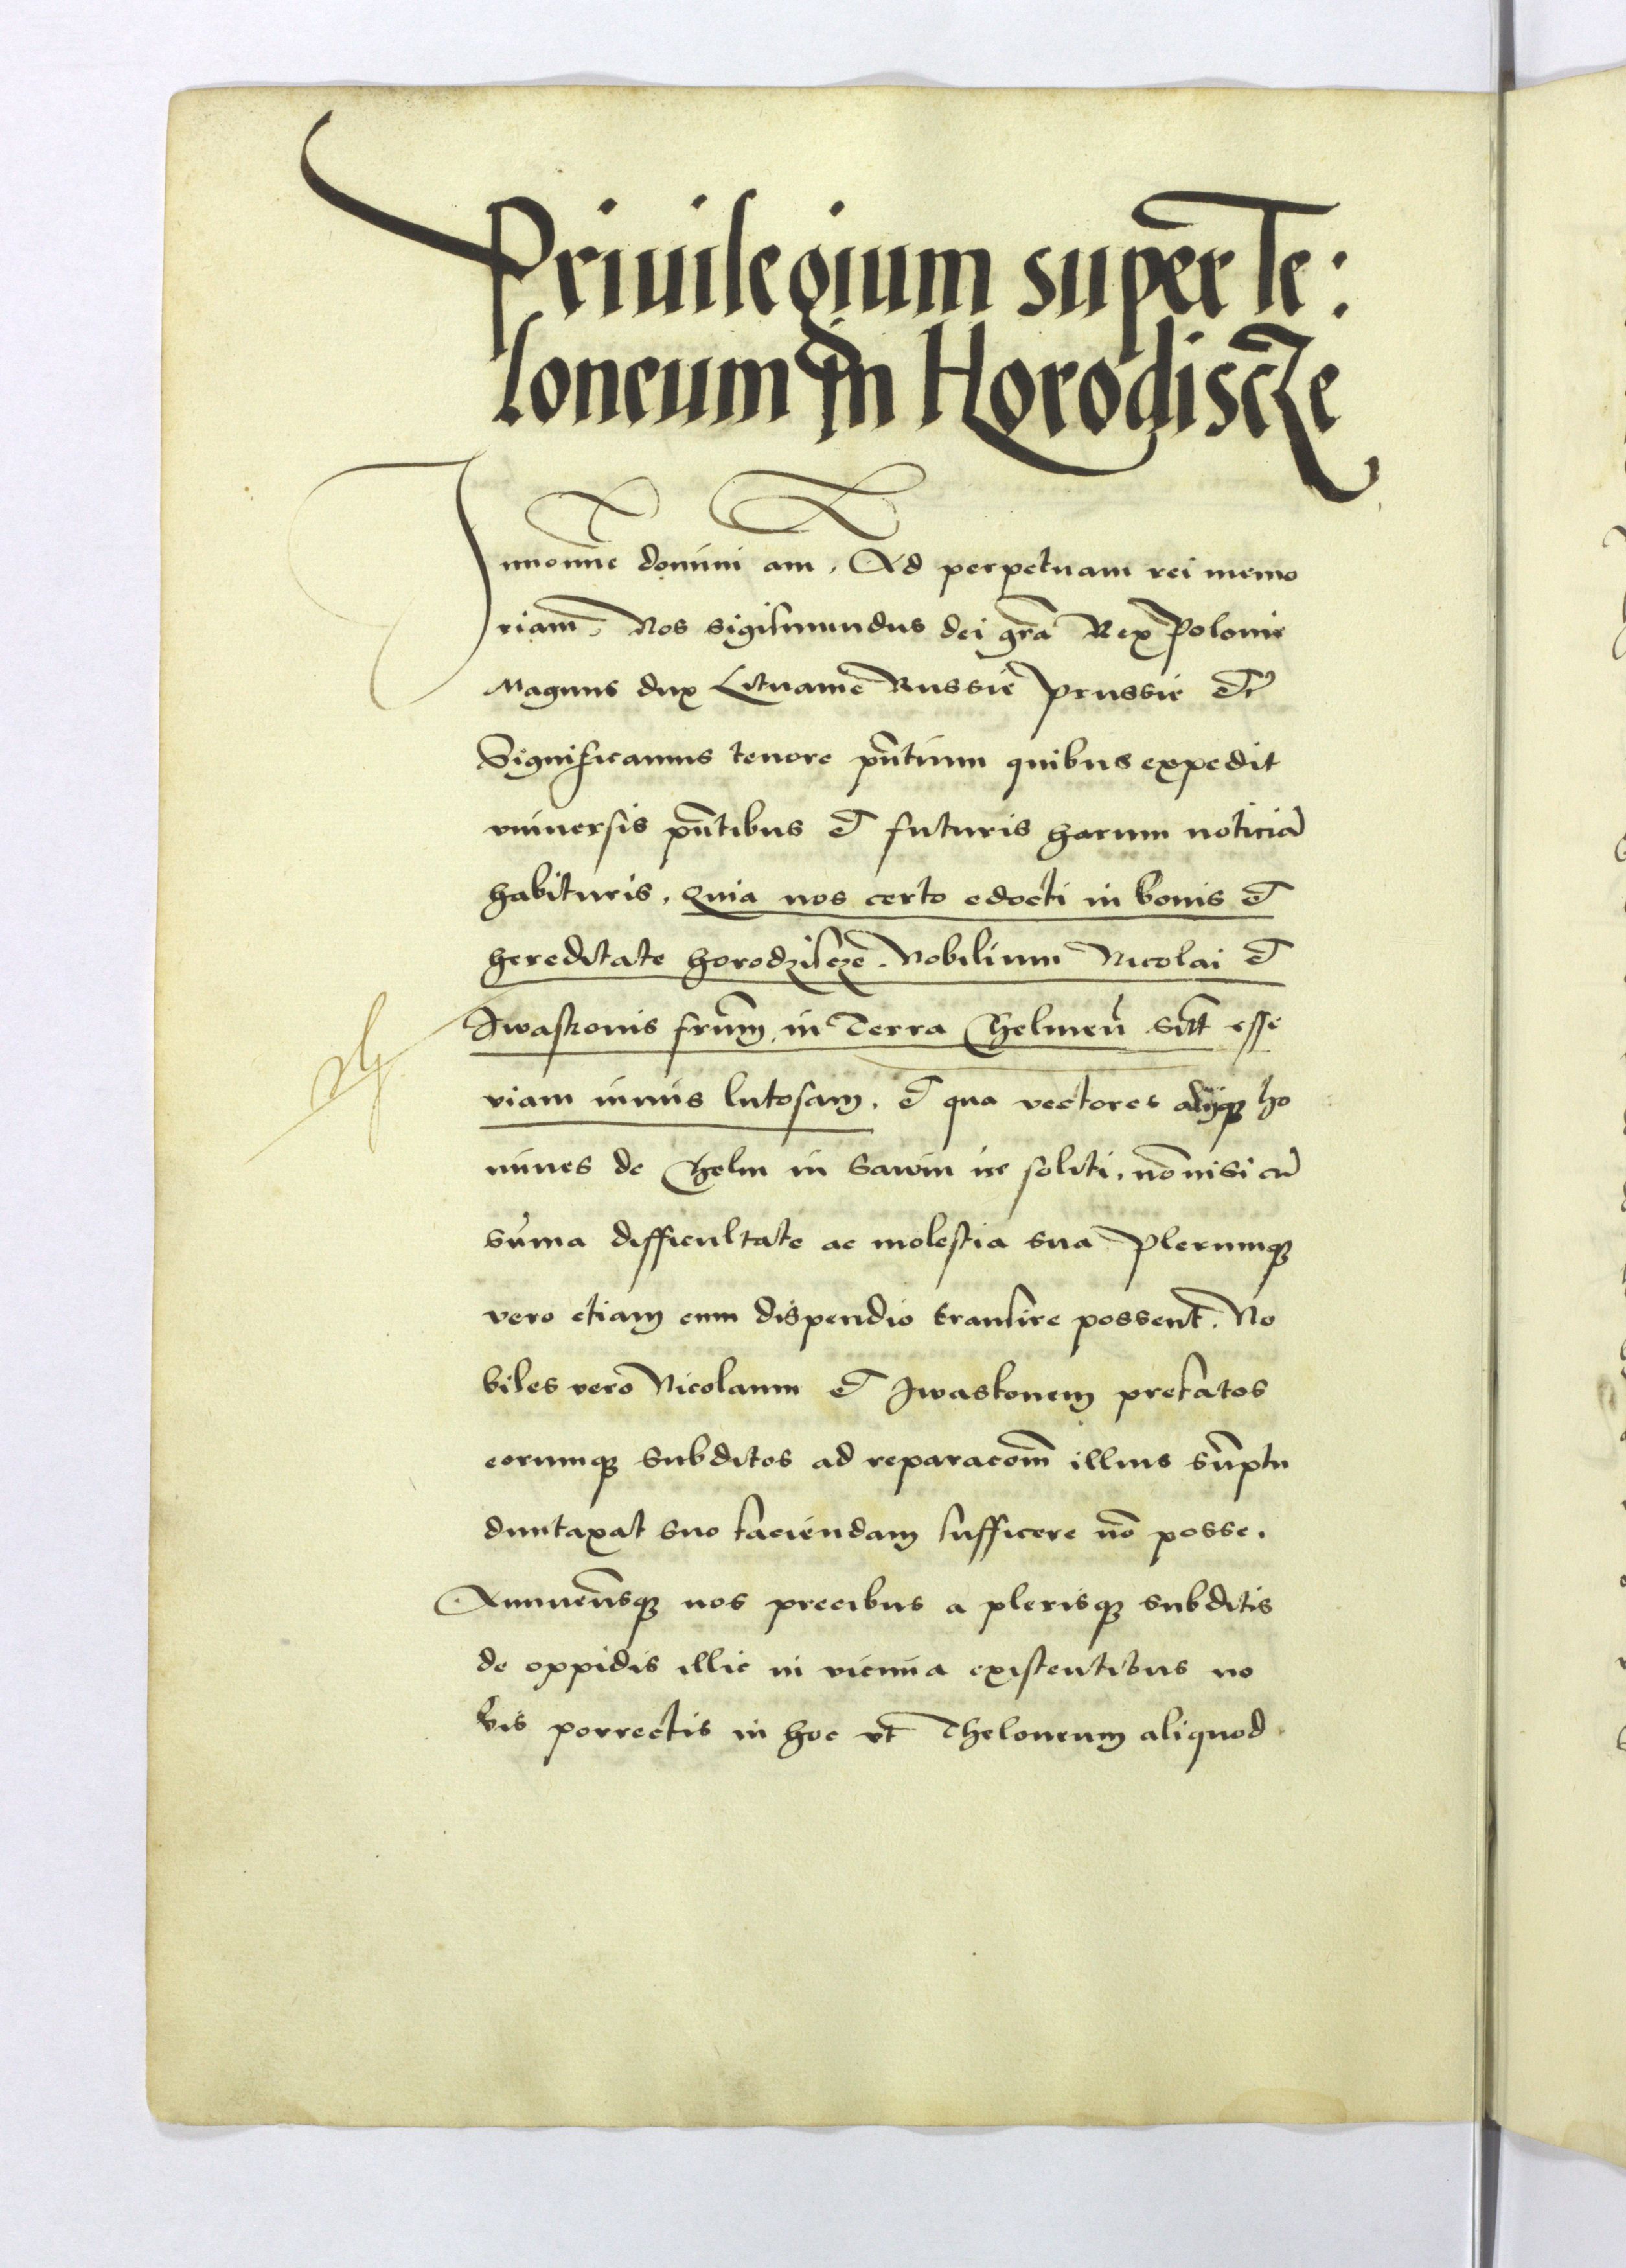 Priuilegium super Te:
loneum In Horodiscze
In no͞ie domini am. Ad perpetuam rei memo
riam̄. Nos Sigismundus dei gr̄a Rex Polonie
Magnus dux Lituanie Russie Prussie etc̄
Significamus tenore pn̄tium quibus expedit
vniuersis pn̄tibus et futuris harum noticiā
habituris. Quia nos certo edocti in bonis et
hereditate horodziscze. Nobilium Nicolai et
Iwaskonis frūm, in Terra Chelmen̄ sitt̄ esse
viam nimis lutosam. et qua vectores alijq̃ ho
mines de Chelm in Sawin ire soliti, nō nisi cū
sūma difficultate ac molestia sua Plerumq̃
vero etiam cum dispendio transire possent. No
biles vero Nicolaum et Iwaskonem prefatos
eorumq̃ subditos ad reparacōm̄ illius sūptu
duntaxat suo faciendam sufficere nō posse.
Annuen̄sq̃ nos precibus a plerisq̃ subditis
de oppidis illic in vicinia existentibus no
bis porrectis in hoc vt Theloneum aliquod